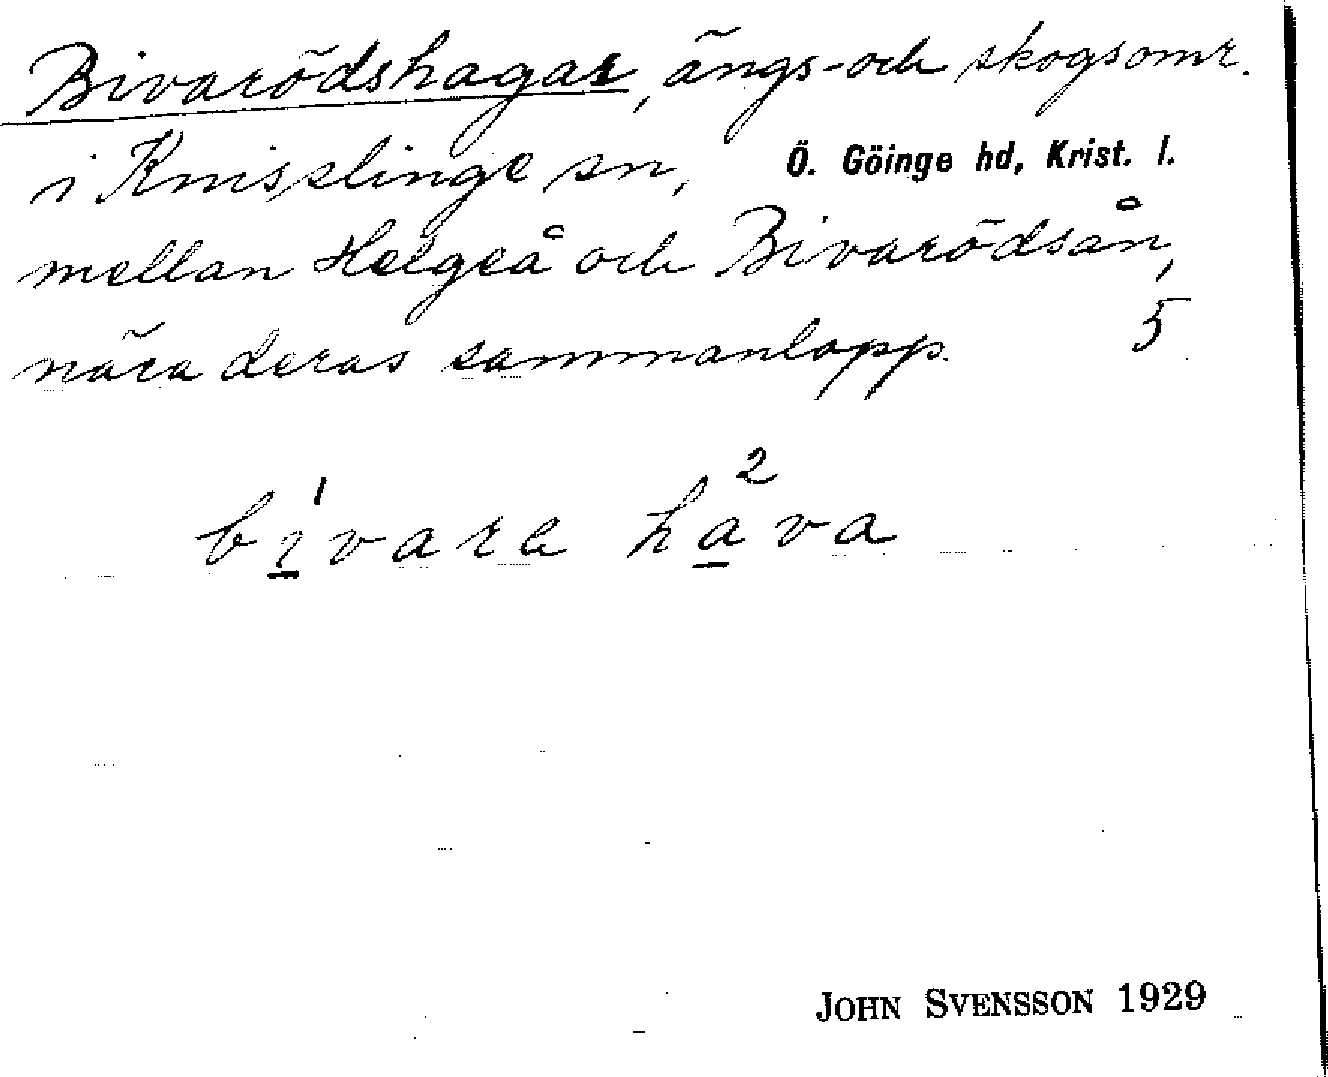 Bivarödshagar, ängs- och skogsomr.
i Knisslinge sn, Ö. Göinge hd, Krist. l.
mellan Helgeå och Bivarödsån,
nära deras sammanlopp. 5
1 2
bivare hava
JOHN SVENSSON 1929